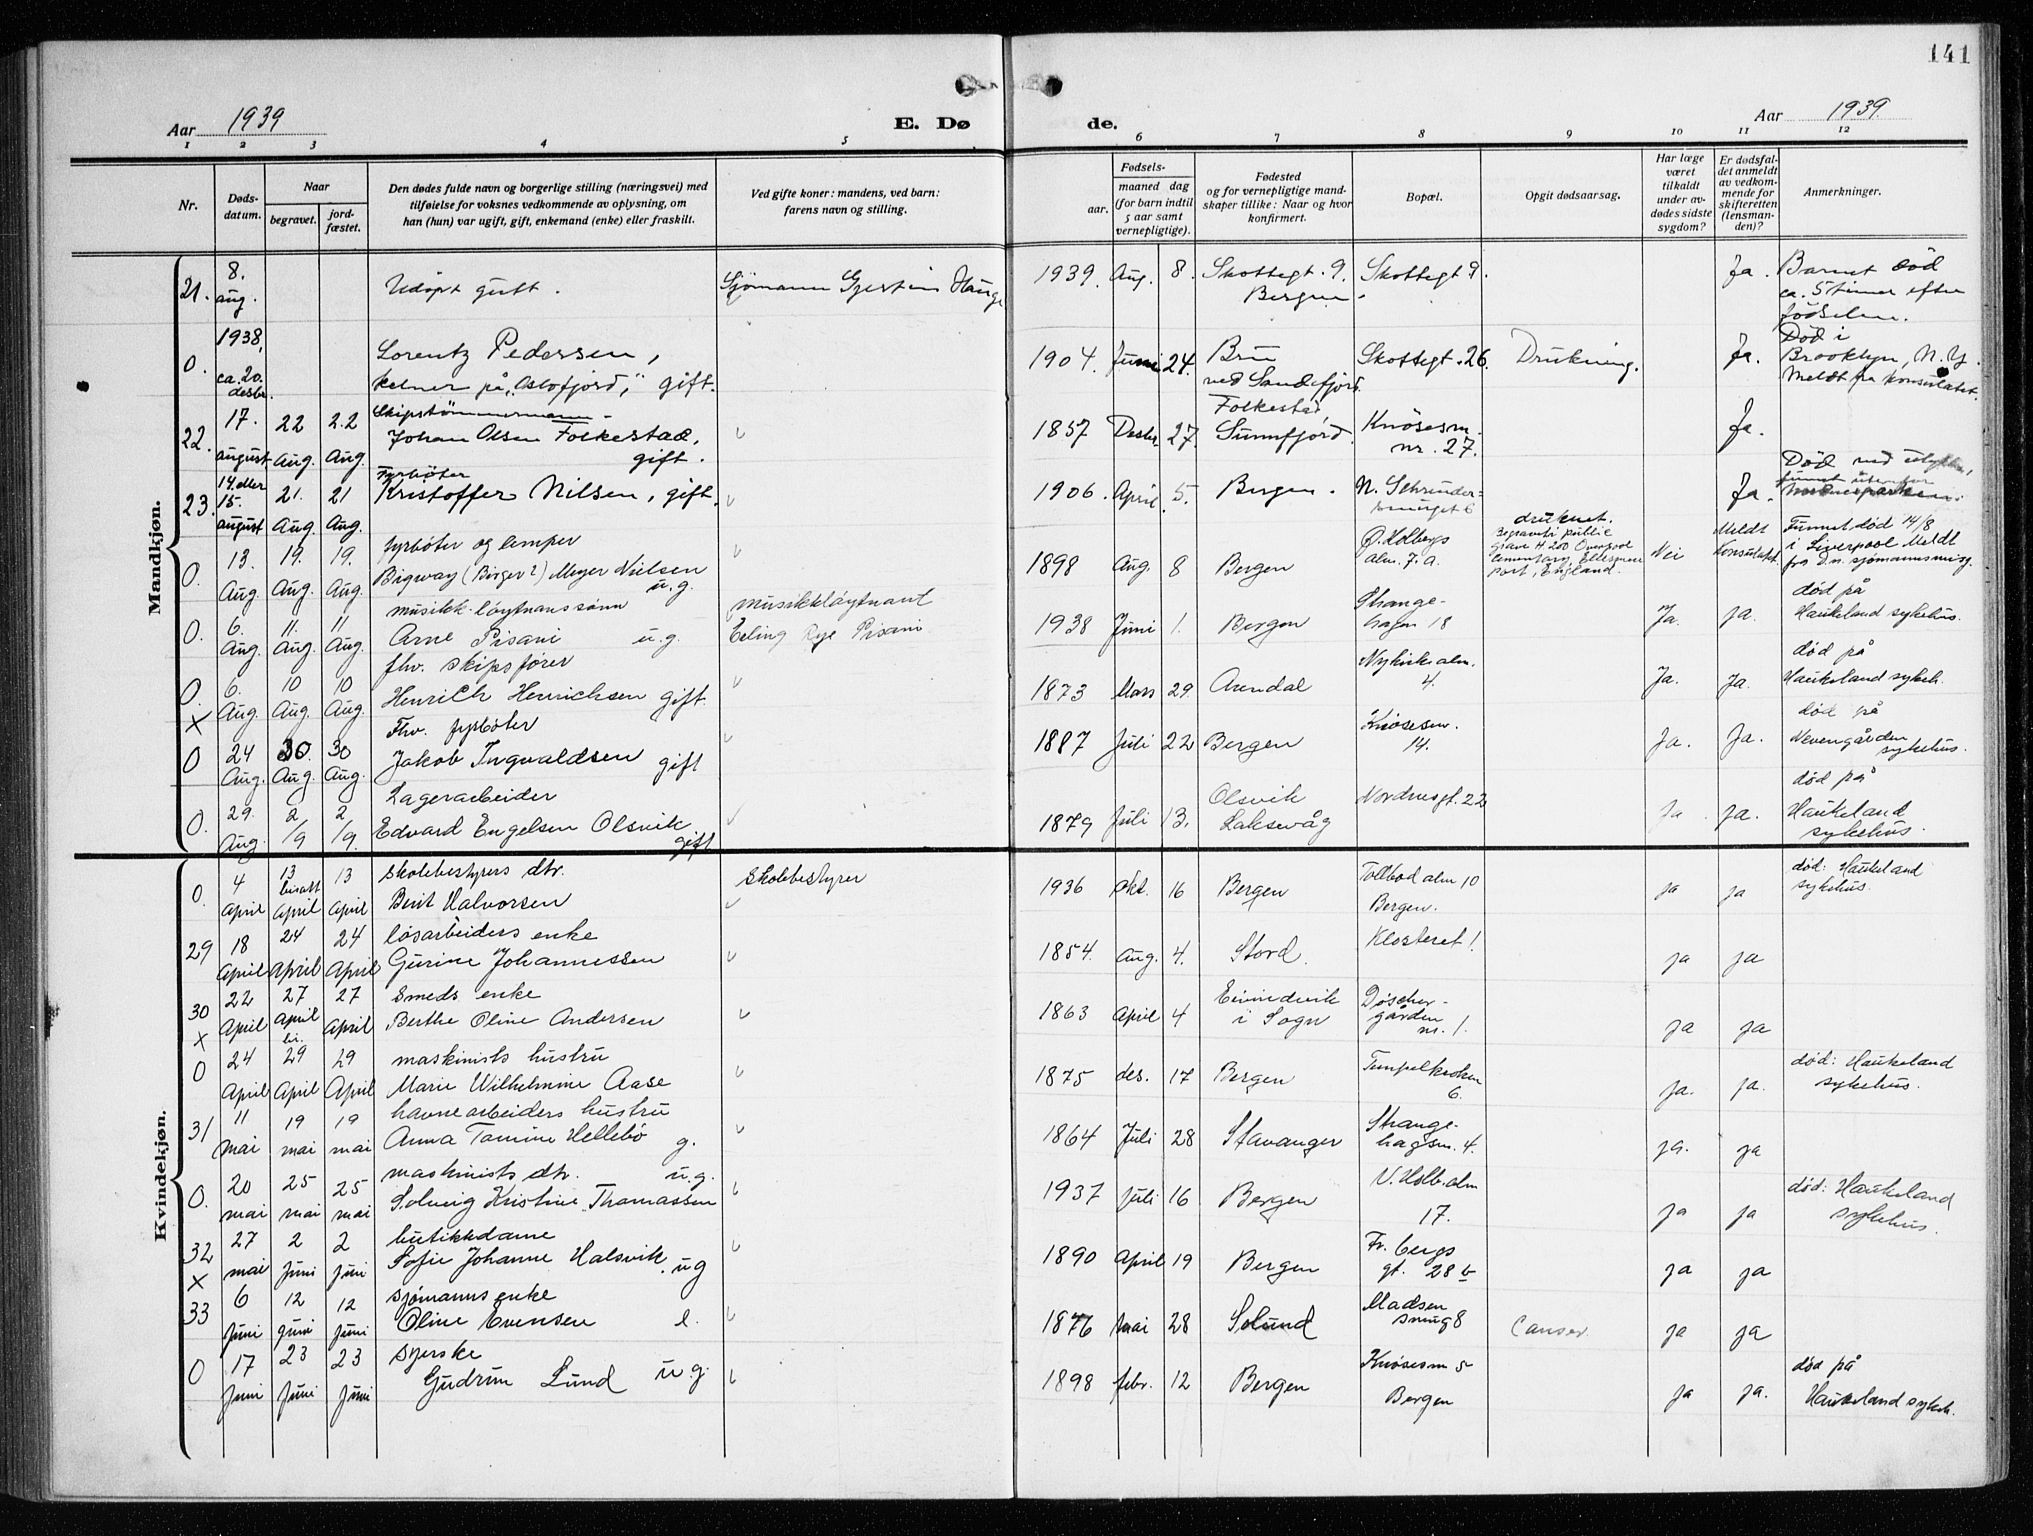 141
Aar 1939
E. Dø de.
Aar 1939.
1 2 3 4 5 6 7 8 9 10 11 12
Nr.
Døds-
datum.
Naar
begravet.
jord-
fæstet.
Den dødes fulde navn og borgerlige stilling (næringsvei) med
tilføielse for voksnes vedkommende av oplysning, om
han (hun) var ugift, gift, enkemand (enke) eller fraskilt.
Ved gifte koner: mandens, ved barn:
farens navn og stilling.
Fødsels-
aar.
maaned dag
(for barn indtil
5 aar samt
vernepligtige).
Fødested
og for vernepligtige mand-
skaper tillike: Naar og hvor
konfirmert.
Bopæl.
Opgit dødsaarsag.
Har læge
været
tilkaldt
under av-
dødes sidste
sygdom?
Er dødsfal-
det anmeldt
av vedkom-
mende for
skifteretten
(lensman-
den)?
Anmerkninger.
Mandkjøn.
21. 8. aug. Udøpt gutt. Sjømann Gjertin Hauge 1939. Aug. 8. Skottegt. 9. Bergen. Skottegt 9. Ja. Barnet død
ca. 5 timer efter
fødselen.
0. 1938, ca. 20. desbr. Lorentz Pedersen,
kelner på „Oslofjord," gift. 1904. Juni 24. Bru
ved Sandefjord. Skottegt. 26. Drukning. Ja. Død i
Brooklyn, N.Y.
Meldt fra konsulatet.
22. 17. august 22 Aug. 22 Aug. Skipstømmermann
Johan Olsen Folkestad,
gift. 1857 Desbr. 27. Folkestad,
Sunnfjord. Knøsesm.
nr. 27. Ja.
23. 14. eller 15. august 21. Aug. 21 Aug. Fyrbøter
Kristoffer Nilsen, gift. 1906. April 5. Bergen. Ja. Død ved
0. 13. Aug. 19. Aug. 19. Aug. fyrbøter og lemper
Bigway (Birger?) Meyer Nielsen
u.g. 1898 Aug. 8 Bergen Ø. Holbergs
alm. 7. a. druknet.
Begravet i public
grave H 200 Overpool
cemetary, Ellesmere
port, England. Nei Meldt
konsulatet. Funnet død 14/8
i Liverpool Meldt
fra D.n. sjømannsmisj.
0. 6. Aug. 11. Aug. 11 Aug. musikk-løytnanssønn
Arne Pisani u.g. musikkløytnant
Erling Rye Pisani 1938 Juni 1. Bergen Strange-
hagen 18 Ja. ja. død på
Haukeland sykehus.
0. X 6. Aug. 10 Aug. 10 Aug. fhv. skipsfører
Henrich Henrichsen gift 1873 Mars 29. Arendal Nykirkealm.
4. Ja. Ja. død på
Haukeland sykeh.
0 24 Aug. 30. Aug. 30 Aug. Fhv. fyrbøter
Jakob Ingvaldsen gift 1887 Juli 22 Bergen Knøsesm.
14. Ja. Ja. død på
Nevengården
sykehus.
0. 29. Aug. 2/9 2/9. Lagerarbeider
Edvard Engelsen Olsvik
gift 1879 Juli 13. Olsvik
Laksevåg Nordnesgt. 22 Ja. Ja. død på
Haukeland
sykehus.
Kvindekjøn.
0. 4 April 13 bisatt April 13 April skolebestyrers dtr.
Berit Halvorsen skolebestyrer 1936 okt. 16 Bergen Tollbod alm 10
Bergen. ja ja død: Haukeland
sykehus.
29 18 April 24 April 24 April løsarbeiders enke
Gurine Johannessen 1854. Aug. 4. Stord. Klosteret 1. ja ja
30 X 22 April 27 April bi. 27 April smeds enke
Berthe Oline Andersen 1863 April 4 Eivindvik
i Sogn Døscher-
gården
nr. 1. ja ja
0 24 April 29 April 29 April maskinists hustru
Marie Wilhelmine Aase 1875 des. 17 Bergen
6. ja. ja. død: Haukeland
sykehus.
31 11 mai 19 mai 19 mai havnearbeiders hustru
Anna Tomine Hellebø g. 1864 Juli 28 Stavanger Strange-
hagsm. 4. ja. ja
0. 20 mai 25 mai 25 mai maskinists dtr. u.g.
Solveig Kristine Thomassen 1937 Juli 16 Bergen V. Holb. alm
17. ja ja død: Haukeland
sykehus.
32 X 27 mai 2 Juni 2 Juni butikkdame
Sofie Johanne Halsvik. ug 1890 April 19 Bergen Fr. bergs
gt. 28 b ja ja
33 6 Juni 12 Juni 12 Juni sjømanns enke
Oline Evensen e. 1876 mai 28 Solund Madsen
smug 8 Canser. ja ja
0 17 Juni 23 Juni 23 Juni syerske
Gudrun Lund u.g. 1898 febr. 12 Bergen Knøsesm 5
Bergen ja ja. død på
Haukeland sykeh.